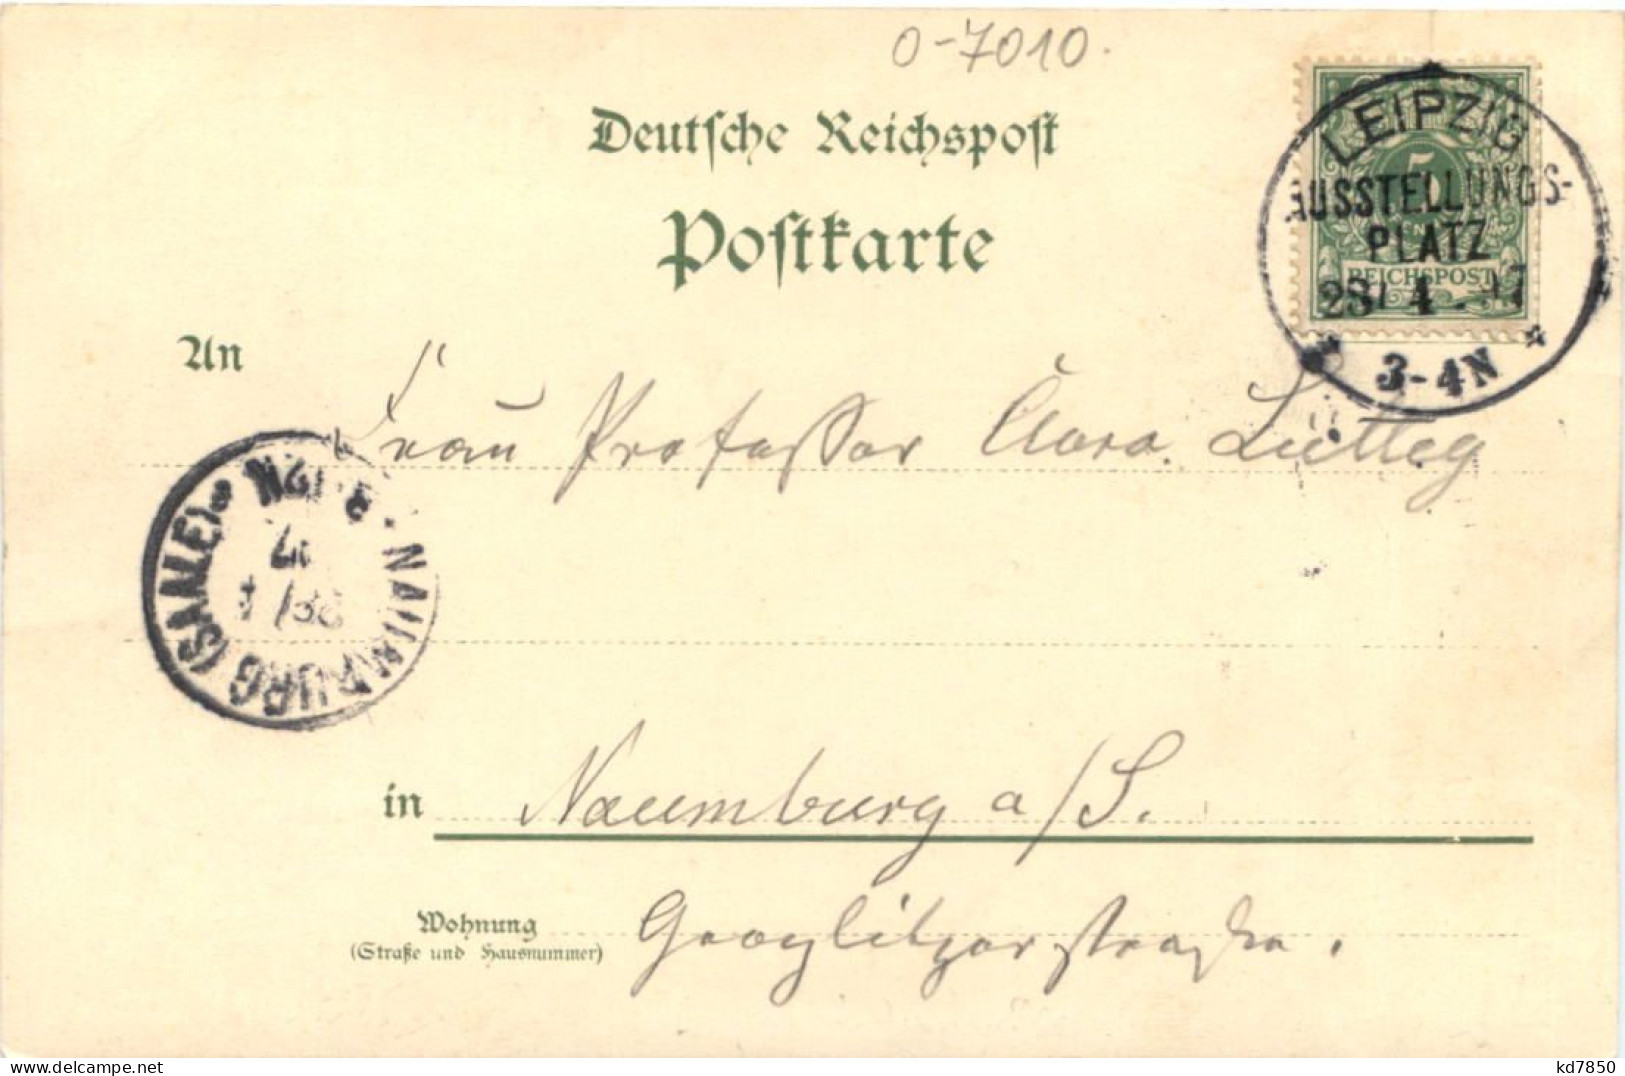 0-7010.
Deutsche Reichspost
Postkarte
LEIPZIG
AUSSTELLUNGS-
PLATZ
5
REICHSPOST
3-4N
An
Frau Professor Clara Lutteg
NAUMBURG (SAALE)
in Naumburg a/S.
Wohnung
(Straße und Hausnummer)
straße.
kd7850